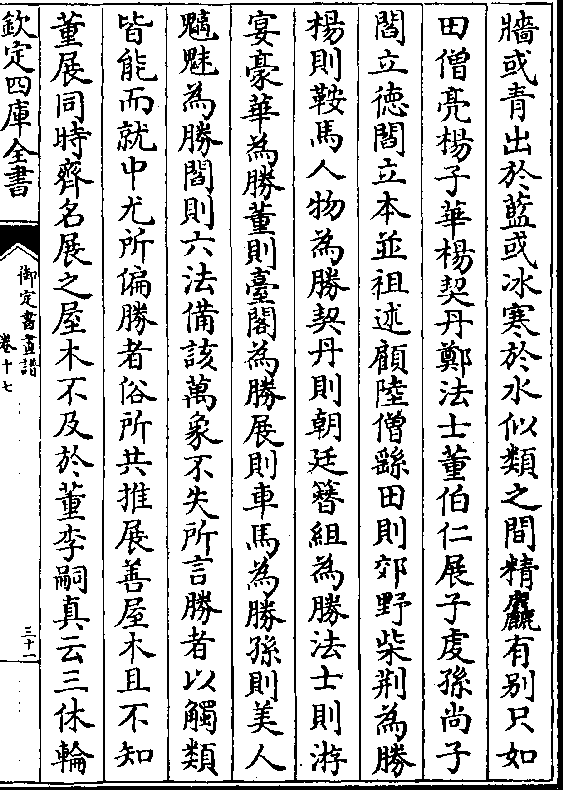 牆或青出於藍或冰寒於水似類之間精麤有别只如
田僧亮楊子華楊契丹鄭法士董伯仁展子虔孫尚子
閻立徳閻立本並祖述顧陸僧繇田則郊野柴荆為勝
楊則鞍馬人物為勝契丹則朝廷簪組為勝法士則游
宴豪華為勝董則臺閣為勝展則車馬為勝孫則美人
魑魅為勝閻則六法備該萬象不失所言勝者以觸類
皆能而就中尤所偏勝者俗所共推展善屋木且不知
董展同時齊名展之屋木不及於董李嗣真云三休輪
欽定四庫全書
御定書畫譜
卷十七
三十一